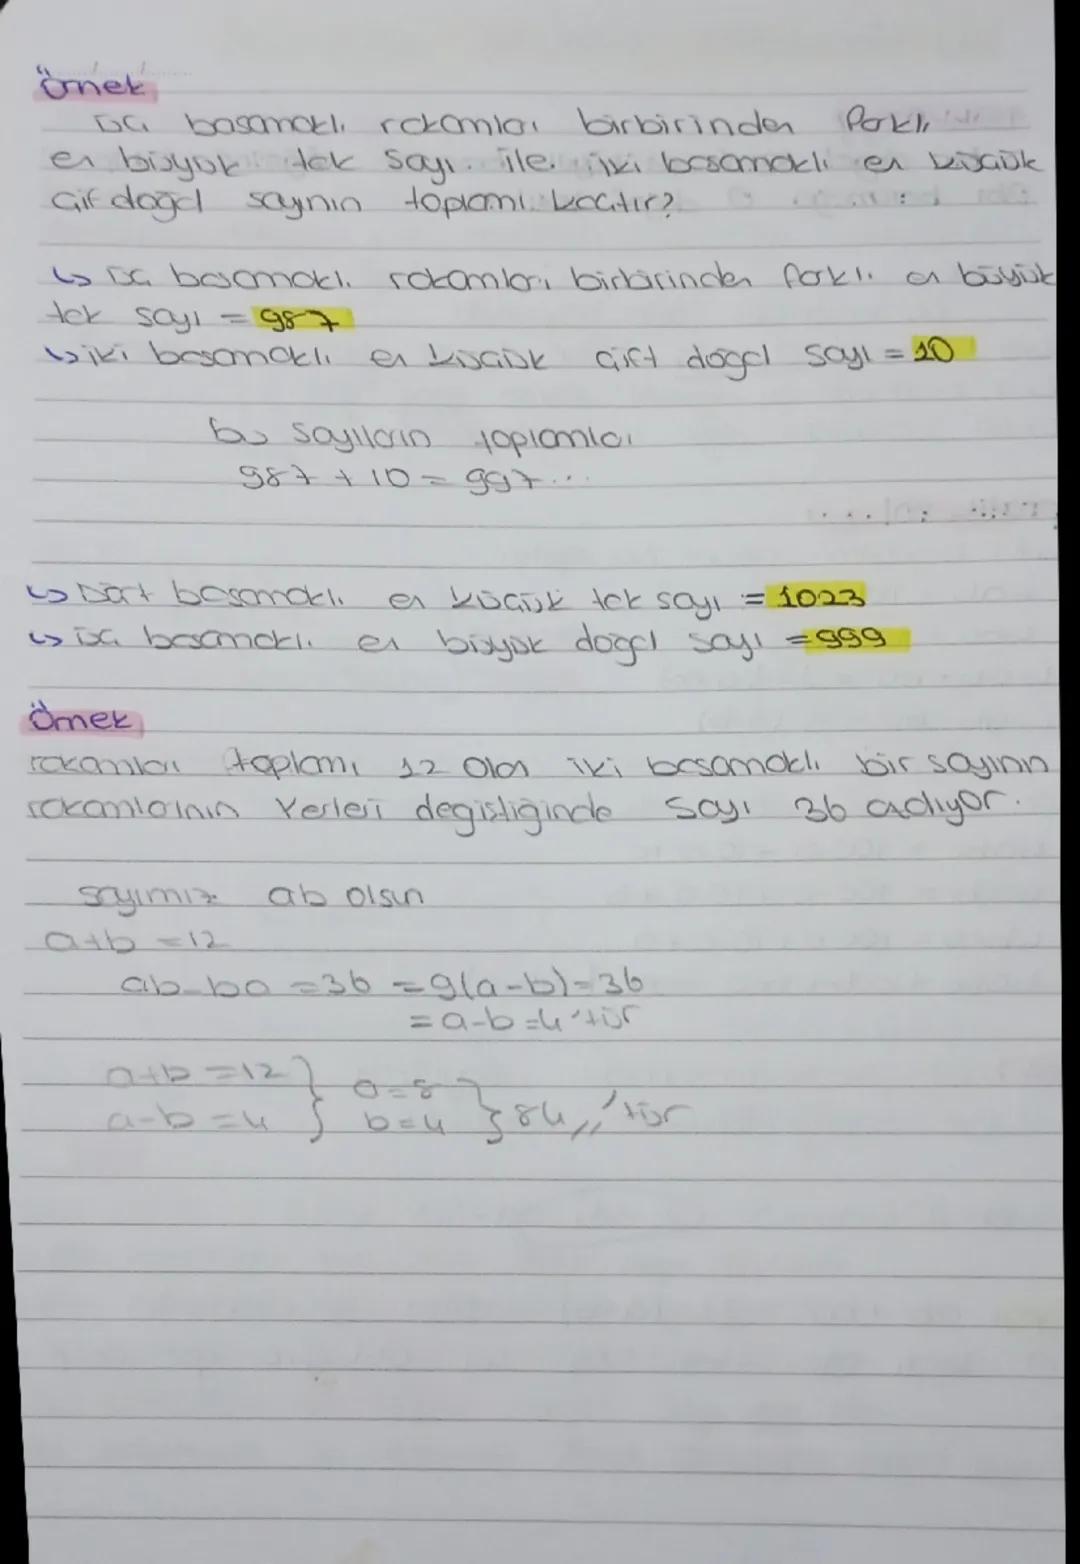 Örnek
üç basamaklı rakamları birbirinden farklı
en büyük tek sayı ile iki basamaklı en küçük
çif doğal sayının toplamı kaçtır?
↳ üç basamaklı rakamları birbirinden farklı en büyük
tek sayı = 987
↳ iki basamaklı en küçük çift doğal sayı = 10
bu sayıların toplamları
987 + 10 = 997...
↳ Dört basamaklı en küçük tek sayı = 1023
↳ üç basamaklı en büyük doğal sayı = 999
Örnek
rakamları toplamı 12 olan iki basamaklı bir sayının
rakamlarının Yerleri degiştiğinde sayı 36 azalıyor.
sayımız ab olsun
a+b = 12
ab-ba = 36 = 9(a-b) = 36
= a-b = 4'tür
a+b = 12 } a = 8
a-b = 4 } b = 4 } 84,, 'tür